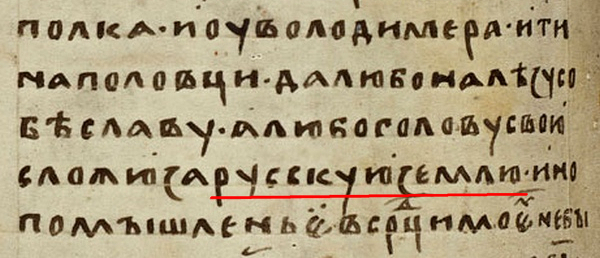 полка·ноуволодимера·ити
наполовци·далюбоналѣзусо
бѣславу·алюбоголовусвои
сложюзарусскуюземлю·ино
помышленьꙗвсрⷣцимоѥⷨнебы